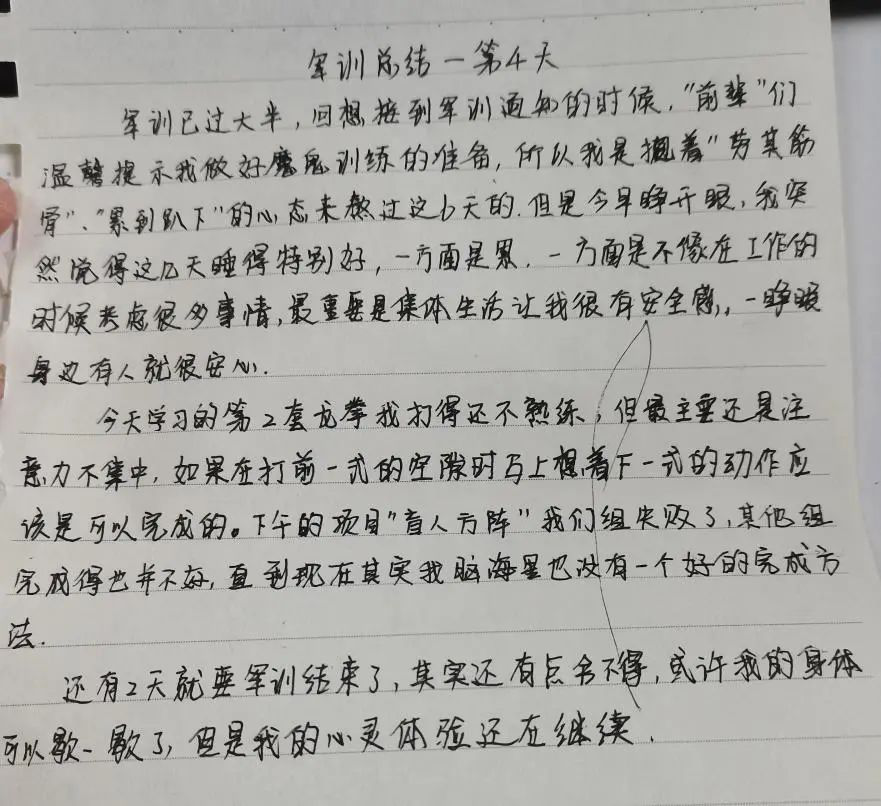 军训总结一第4天
军训已过大半，回想接到军训通知的时候，"前辈"们
温馨提示我做好魔鬼训练的准备，所以我是抱着"劳其筋
骨"、"累到趴下"的心态来熬过这6天的.但是今早睁开眼，我突
然觉得这几天睡得特别好，一方面是累，一方面是不像在工作的
时候考虑很多事情，最重要是集体生活让我很有安全感，一睁眼
身边有人就很安心.
今天学习的第2套龙拳我打得还不熟练，但最主要还是注
意力不集中，如果在打前一式的空隙时马上想着下一式的动作应
该是可以完成的。下午的项目"盲人方阵"我们组失败了，其他组
完成得也并不好，直到现在其实我脑海里也没有一个好的完成方
法.
还有2天就要军训结束了，其实还有点舍不得，或许我的身体
可以歇一歇了，但是我的心灵体验还在继续.